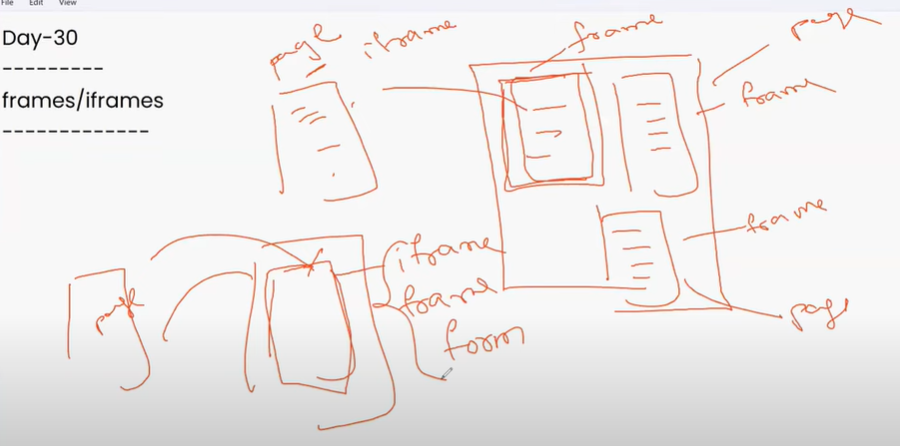 File Edit View
Day-30
---------
frames/iframes
-------------
page
iframe
frame
page
frame
frame
page
page
iframe
frame
form